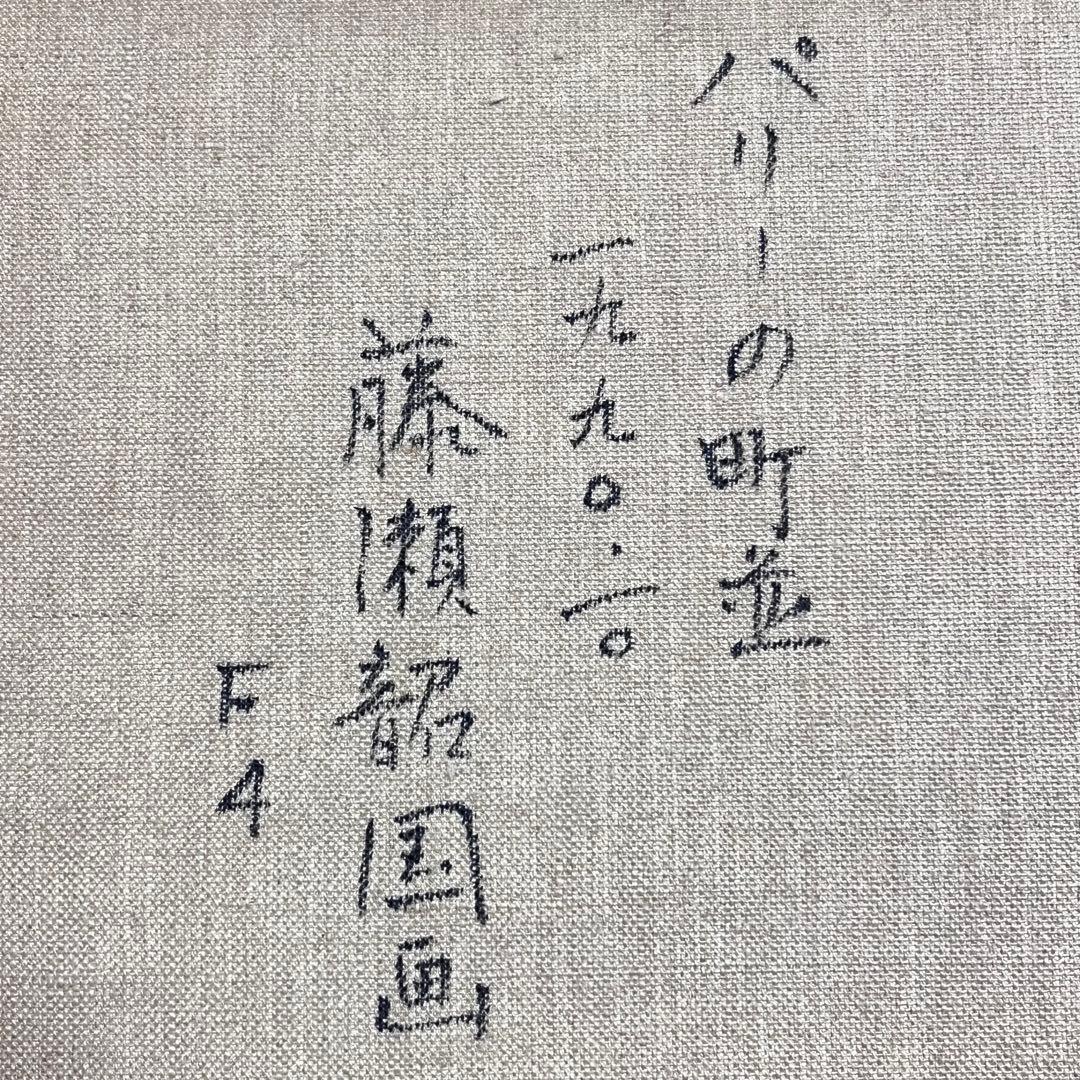 パリーの町並
一九九〇.一〇
藤瀬韶国画
F4